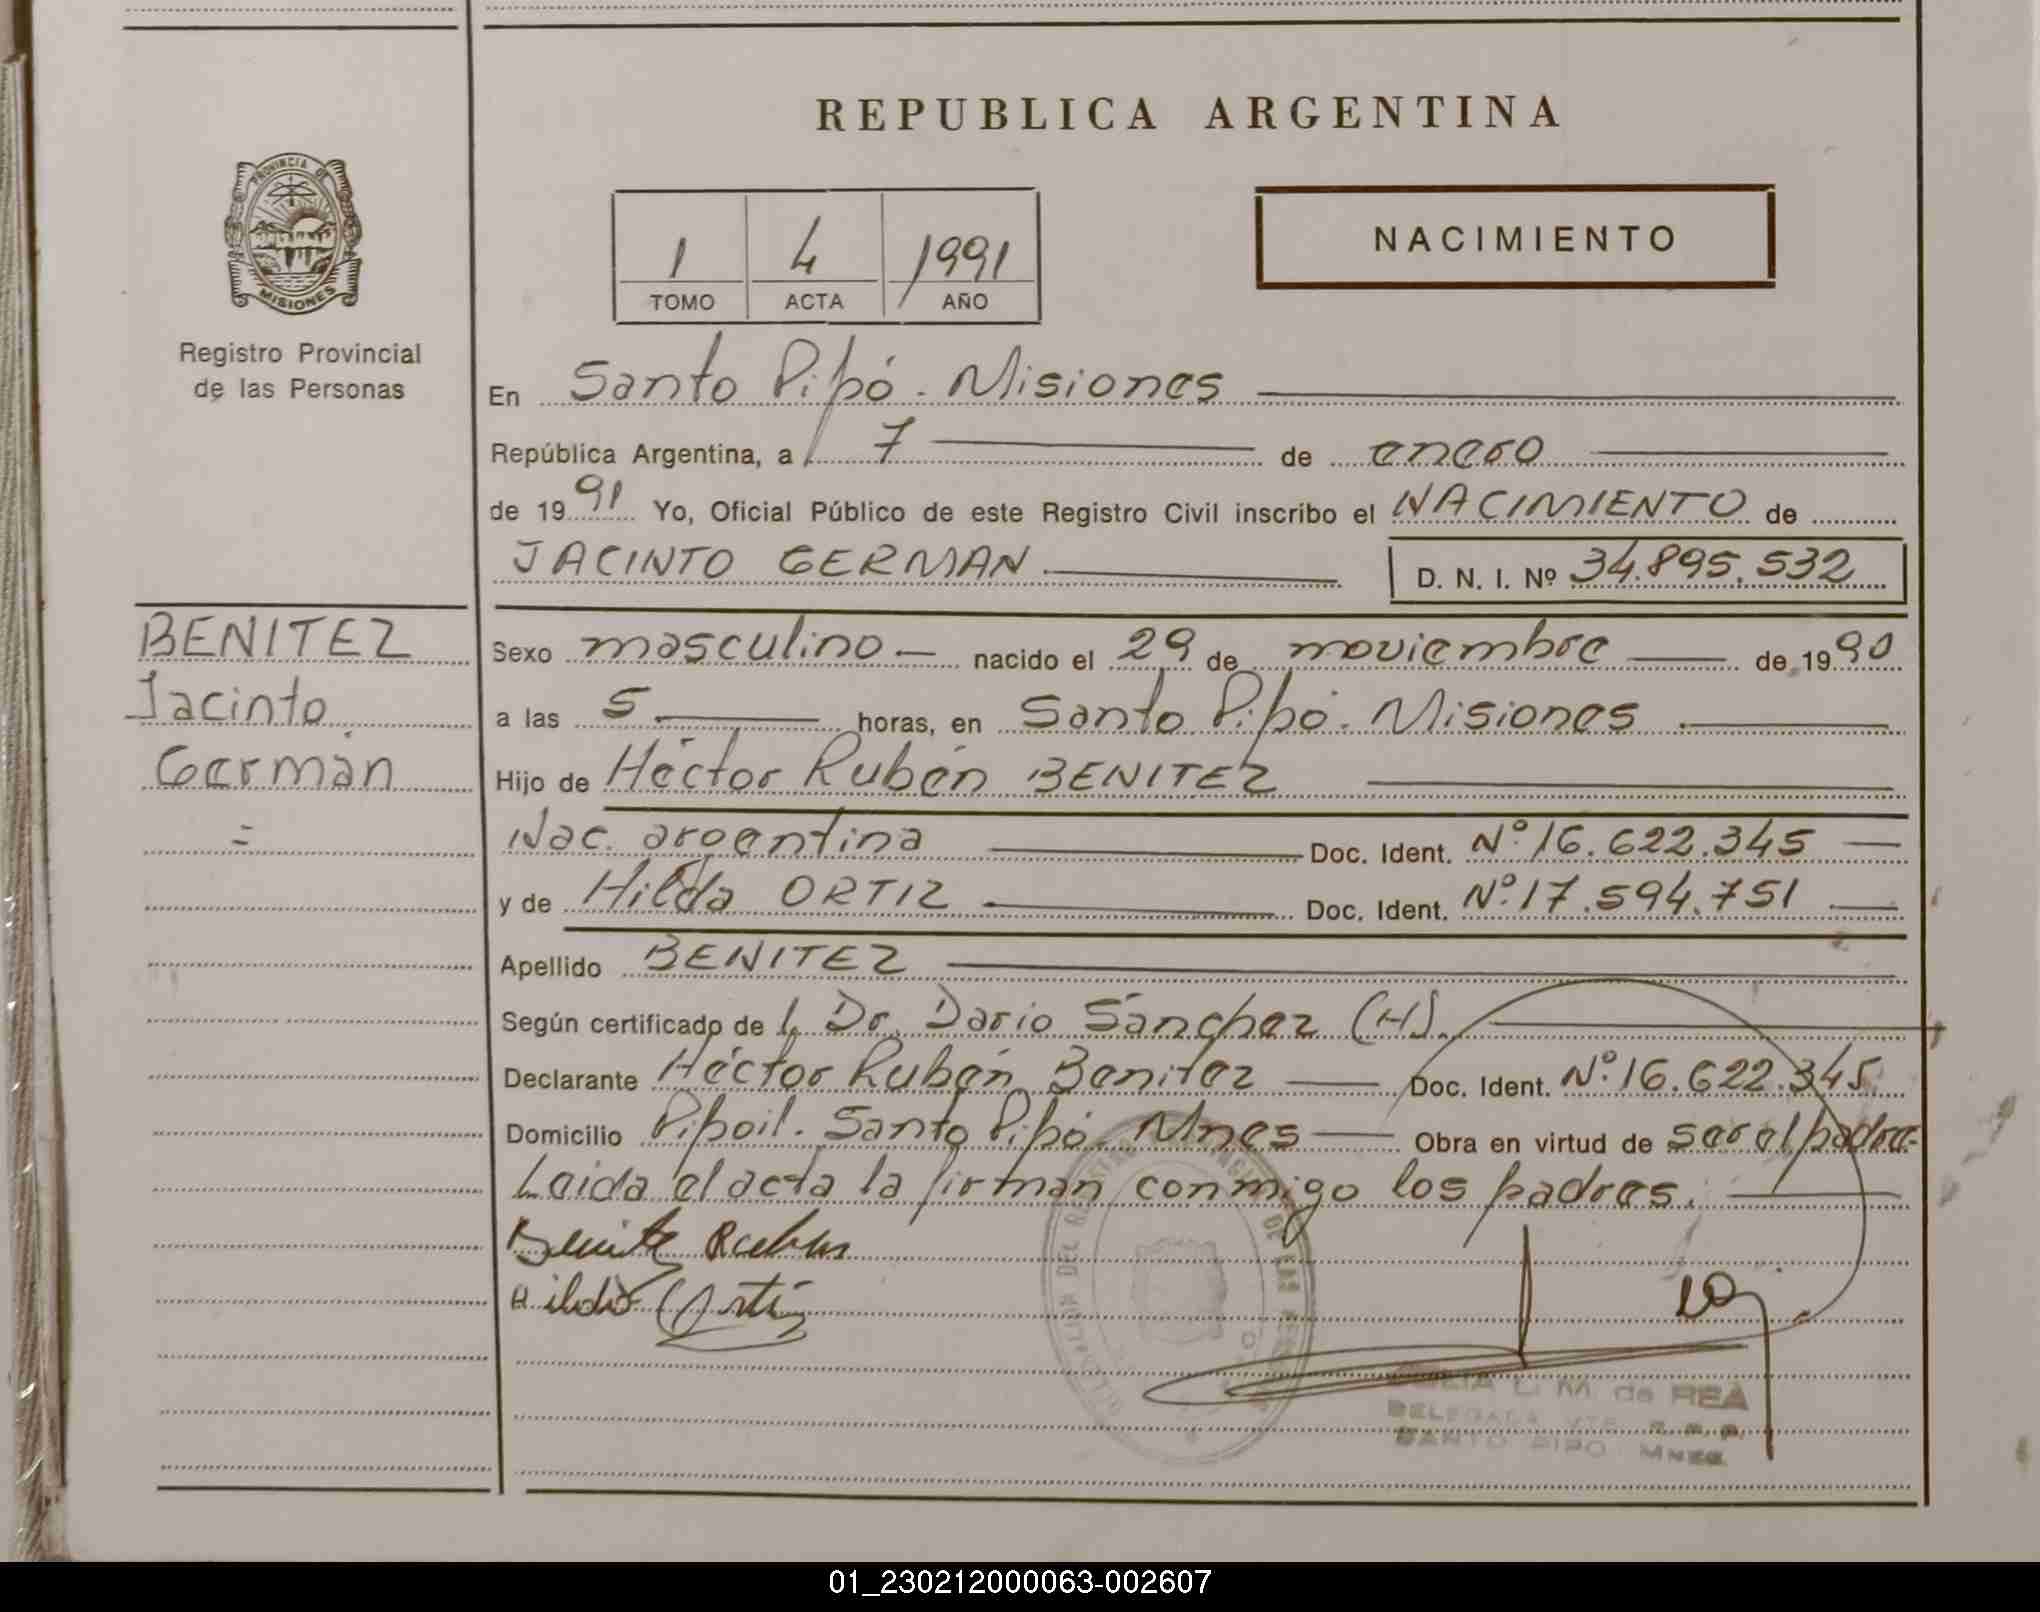 REPUBLICA ARGENTINA
PROVINCIA DE
MISIONES
Registro Provincial
de las Personas
1 4 1991
TOMO ACTA AÑO
NACIMIENTO
En Santo Pipó. Misiones
República Argentina, a 7 de enero
de 1991 Yo, Oficial Público de este Registro Civil inscribo el NACIMIENTO de
JACINTO GERMAN D. N. I. Nº 34.895.532
BENITEZ
Jacinto
Germán
=
Sexo masculino nacido el 29 de noviembre de 1990
a las 5 horas, en Santo Pipó. Misiones
Hijo de Héctor Rubén BENITEZ
Nac. argentina Doc. Ident. Nº 16.622.345
y de Hilda ORTIZ Doc. Ident. Nº 17.594.751
Apellido BENITEZ
Según certificado de l. Dr. Darío Sánchez (H).
Declarante Héctor Rubén Benítez Doc. Ident. Nº 16.622.345
Domicilio Piboil. Santo Pipó. Mnes Obra en virtud de ser el padre.
Leida el acta la firman conmigo los padres.
Benitez Ruben
Hilda Ortiz
M. de REA
DELEGADA
SANTO PIPO Mnes.
01_230212000063-002607